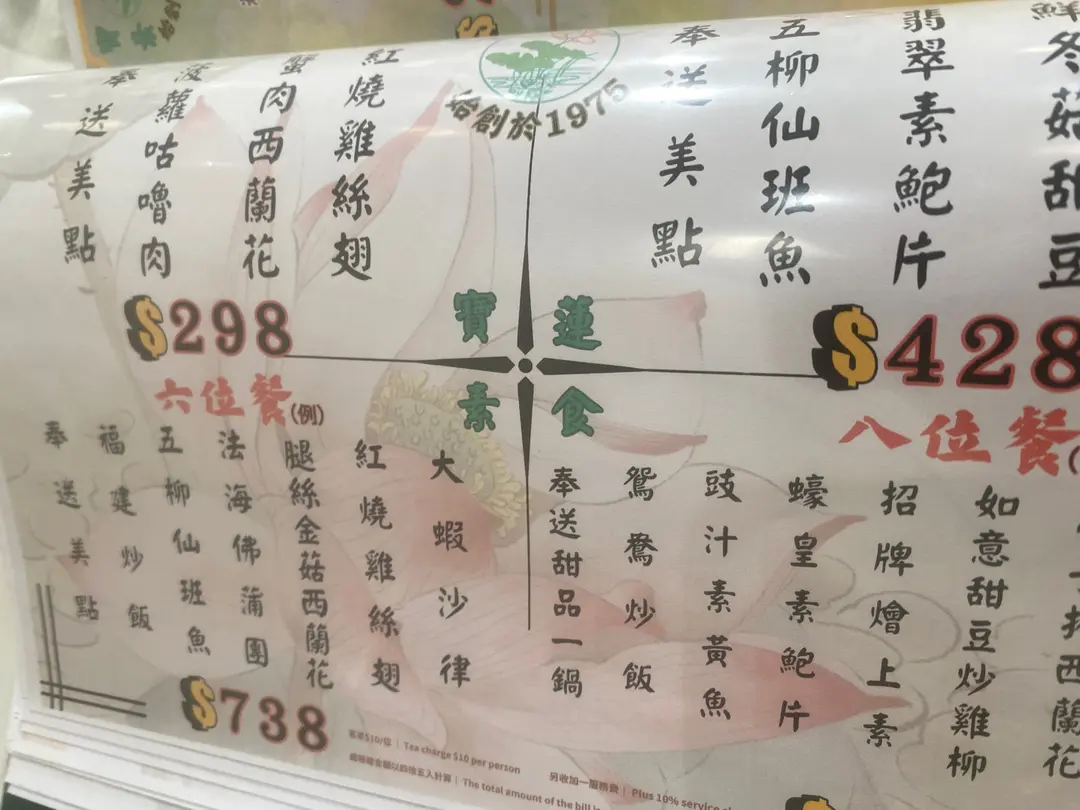 創於1975
紅燒雞絲翅
蟹肉西蘭花
菠蘿咕嚕肉
奉送美點
$298
冬菇甜豆
翡翠素鮑片
五柳仙班魚
奉送美點
$428
寶蓮
素食
六位餐(例)
大蝦沙律
紅燒雞絲翅
腿絲金菇西蘭花
法海佛蒲團
五柳仙班魚
福建炒飯
奉送美點
$738
八位餐
西蘭花
如意甜豆炒雞柳
招牌燴上素
蠔皇素鮑片
豉汁素黃魚
鴛鴦炒飯
奉送甜品一鍋
茶芥$10/位 | Tea charge $10 per person
另收加一服務費 | Plus 10% service
總金額以四捨五入計算 | The total amount of the bill